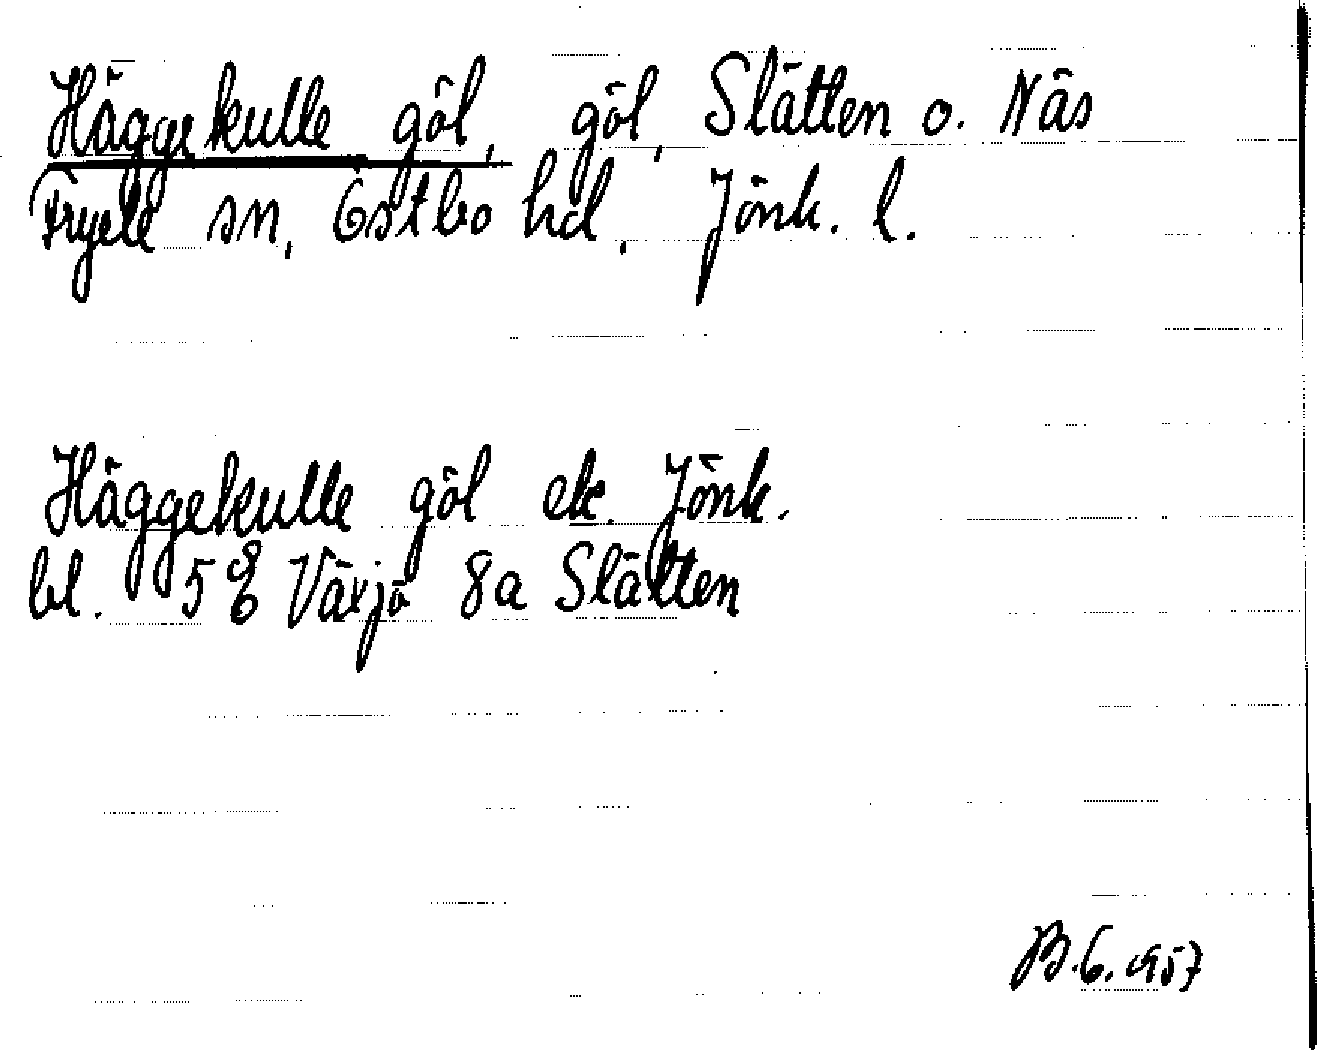 Häggekulle göl, göl, Slätten o. Näs
Fryele sn, Östbo hd, Jönk. l.
Häggekulle göl ek. Jönk.
bl. 5 E Växjö 8a Slätten
B.G. 1957